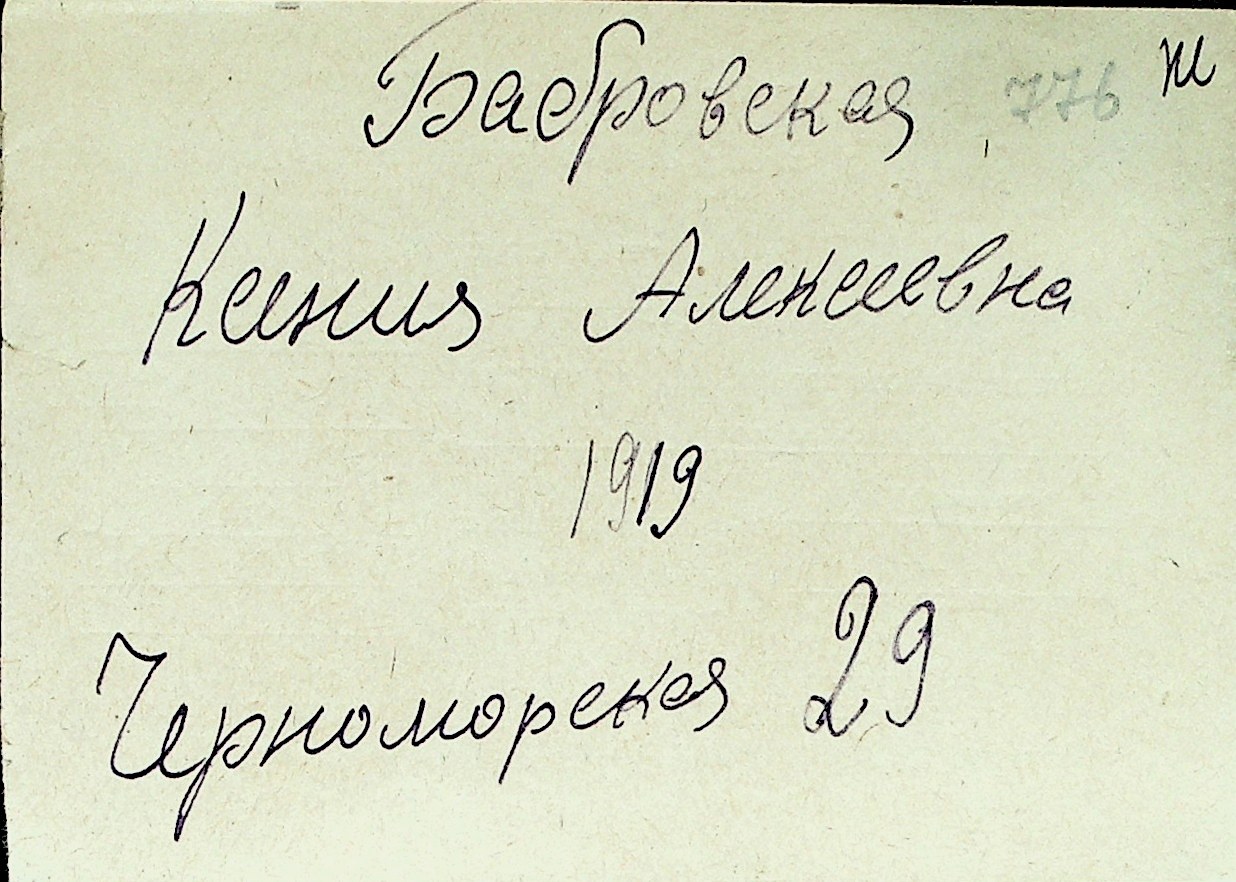 Бабровская 776 ж
Ксения Алексеевна
1919
Черноморская 29